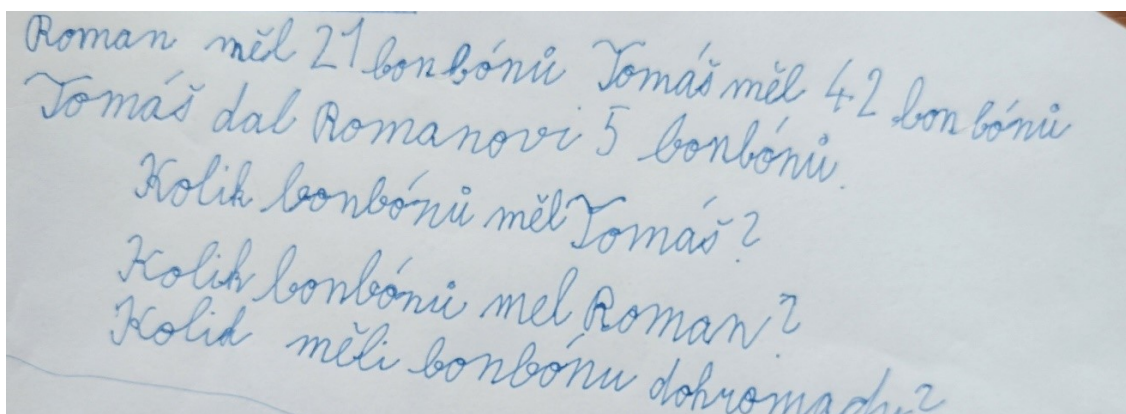 Roman měl 21 bonbónů Tomáš měl 42 bonbónů
Tomáš dal Romanovi 5 bonbónů.
Kolik bonbónů měl Tomáš?
Kolik bonbónů mel Roman?
Kolik měli bonbónu dohromady?